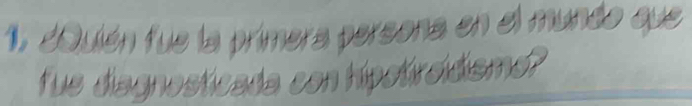 1. ¿Quién fue la primera persona en el mundo que
fue diagnosticada con hipotiroidismo?